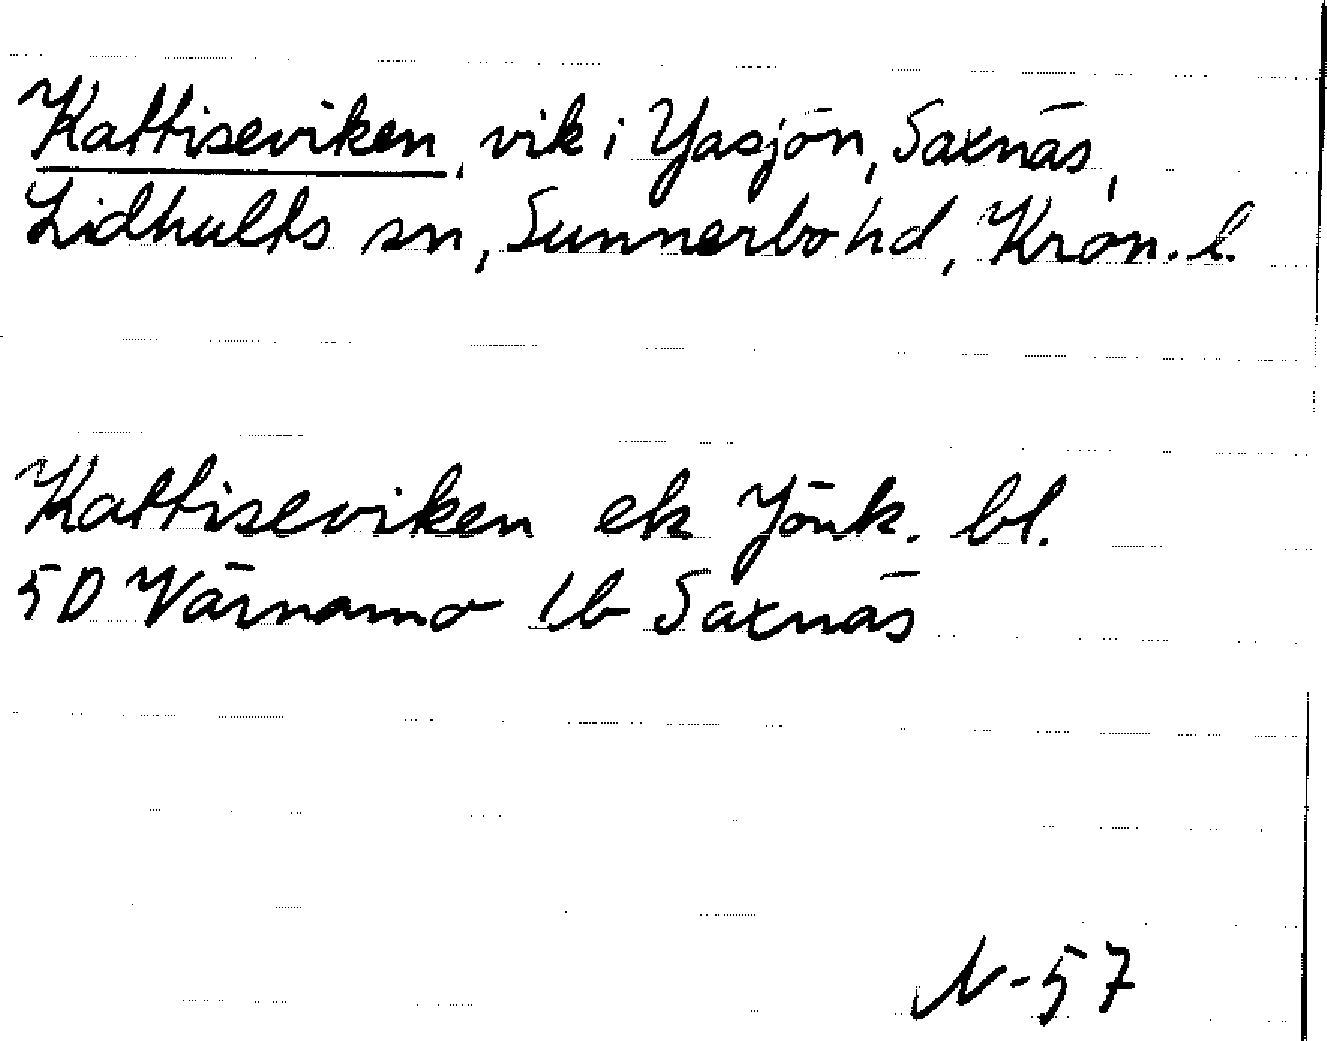 Kattiseviken, vik i Yasjön, Saxnäs,
Lidhults sn, Sunnerbo hd, Kron. l.
Kattiseviken ek Jönk. bl.
5D Värnamo 1b Saxnäs
N-57